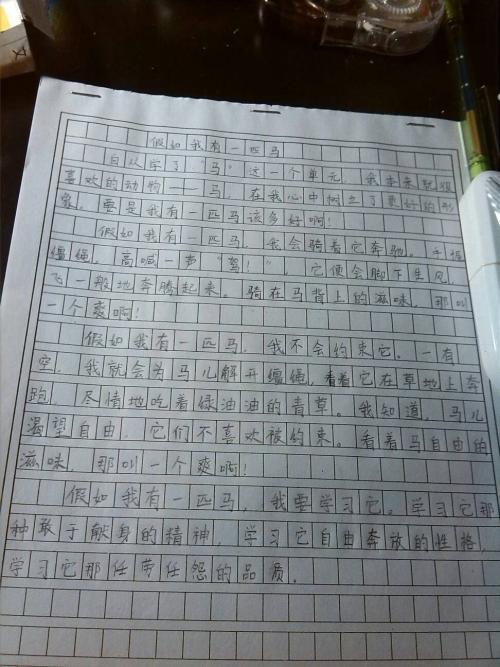 假如我有一匹马
自从学了“马”这一个单元，我本来就很
喜欢的动物——马，在我心中树立了更好的形
象。要是我有一匹马该多好啊！
假如我有一匹马，我会骑着它奔驰。手握
缰绳，高喊一声“驾！”，它便会脚下生风，
飞一般地奔腾起来。骑在马背上的滋味，那叫
一个爽啊！
假如我有一匹马，我不会约束它。一有
空，我就会为马儿解开缰绳，看着它在草地上奔
跑，尽情地吃着绿油油的青草。我知道，马儿
渴望自由，它们不喜欢被约束。看着马自由的
滋味，那叫一个爽啊！
假如我有一匹马，我要学习它。学习它那
种敢于献身的精神，学习它自由奔放的性格，
学习它那任劳任怨的品质。
文